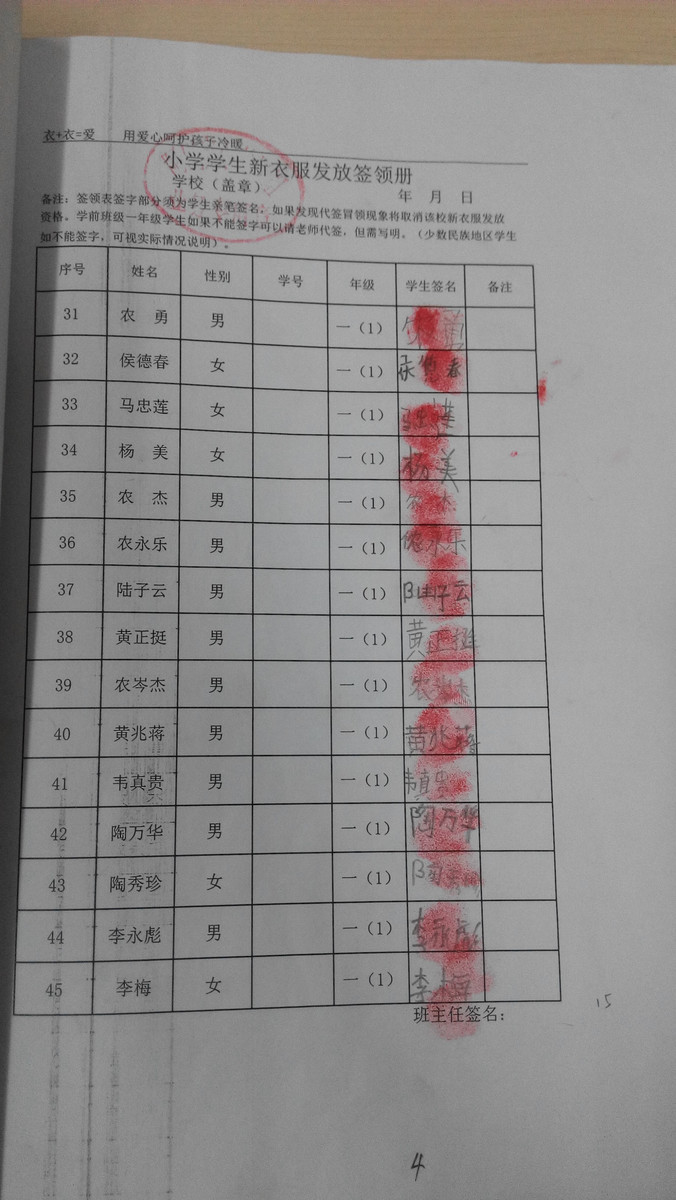 衣+衣=爱 用爱心呵护孩子冷暖
小学学生新衣服发放签领册
学校（盖章）
年 月 日
备注：签领表签字部分须为学生亲笔签名，如果发现代签冒领现象将取消该校新衣服发放
资格。学前班级一年级学生如果不能签字可以请老师代签，但需写明。（少数民族地区学生
如不能签字，可视实际情况说明）。
序号 姓名 性别 学号 年级 学生签名 备注
31 农 勇 男 一（1） 农勇
32 侯德春 女 一（1） 春
33 马忠莲 女 一（1）
34 杨 美 女 一（1） 杨美
35 农 杰 男 一（1） 农杰
36 农永乐 男 一（1） 永乐
37 陆子云 男 一（1） 陆子云
38 黄正挺 男 一（1） 黄正挺
39 农岑杰 男 一（1） 农岑杰
40 黄兆蒋 男 一（1） 黄兆蒋
41 韦真贵 男 一（1） 韦真贵
42 陶万华 男 一（1） 陶万华
43 陶秀珍 女 一（1） 陶
44 李永彪 男 一（1） 李永彪
45 李梅 女 一（1） 李梅
班主任签名：
15
4